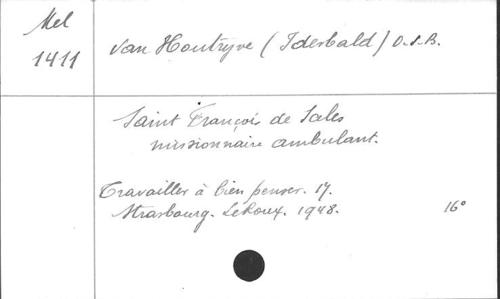 Mel
1411
Van Houtryve (Idesbald) O.S.B.
Saint François de Sales
missionnaire ambulant.
Travailler à bien penser. 17.
Strasbourg. LeRoux. 1948.
16°